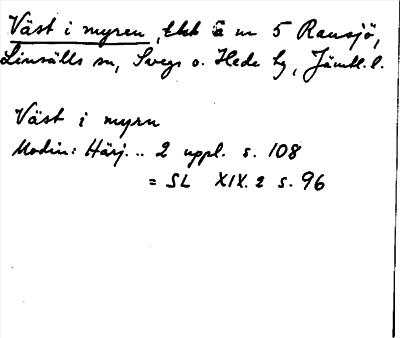 Väst i myren, å nr 5 Ransjö,
Linsälls sn, Svegs o. Hede tg, Jämtl. l.
Väst i myrn
Modin: Härj... 2 uppl. s. 108
= SL XIX. 2 s. 96